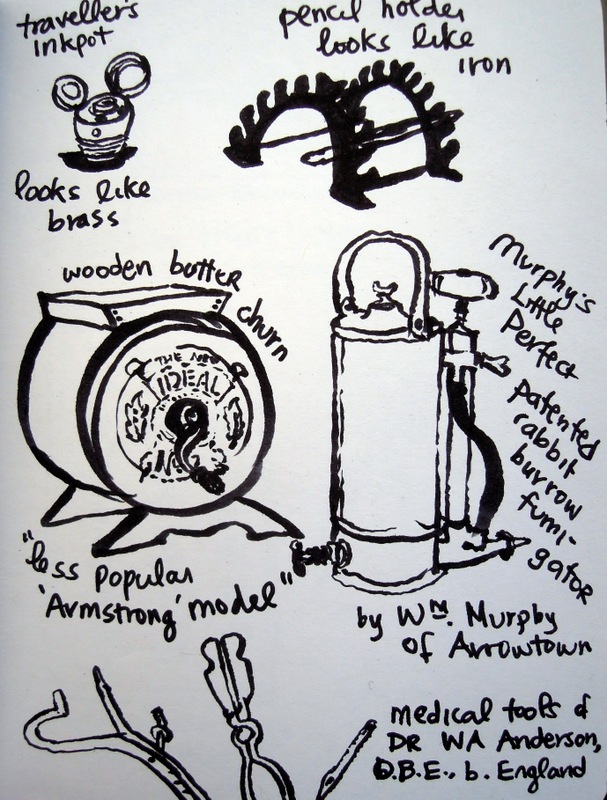 traveller's
inkpot
looks like
brass
pencil holder
looks like
iron
wooden butter
churn
THE NEW
IDEAL
"less popular
'Armstrong' model"
Murphy's
Little
Perfect
patented
rabbit
burrow
fumi-
gator
by Wm. Murphy
of Arrowtown
medical tools of
DR WA Anderson,
O.B.E., b. England